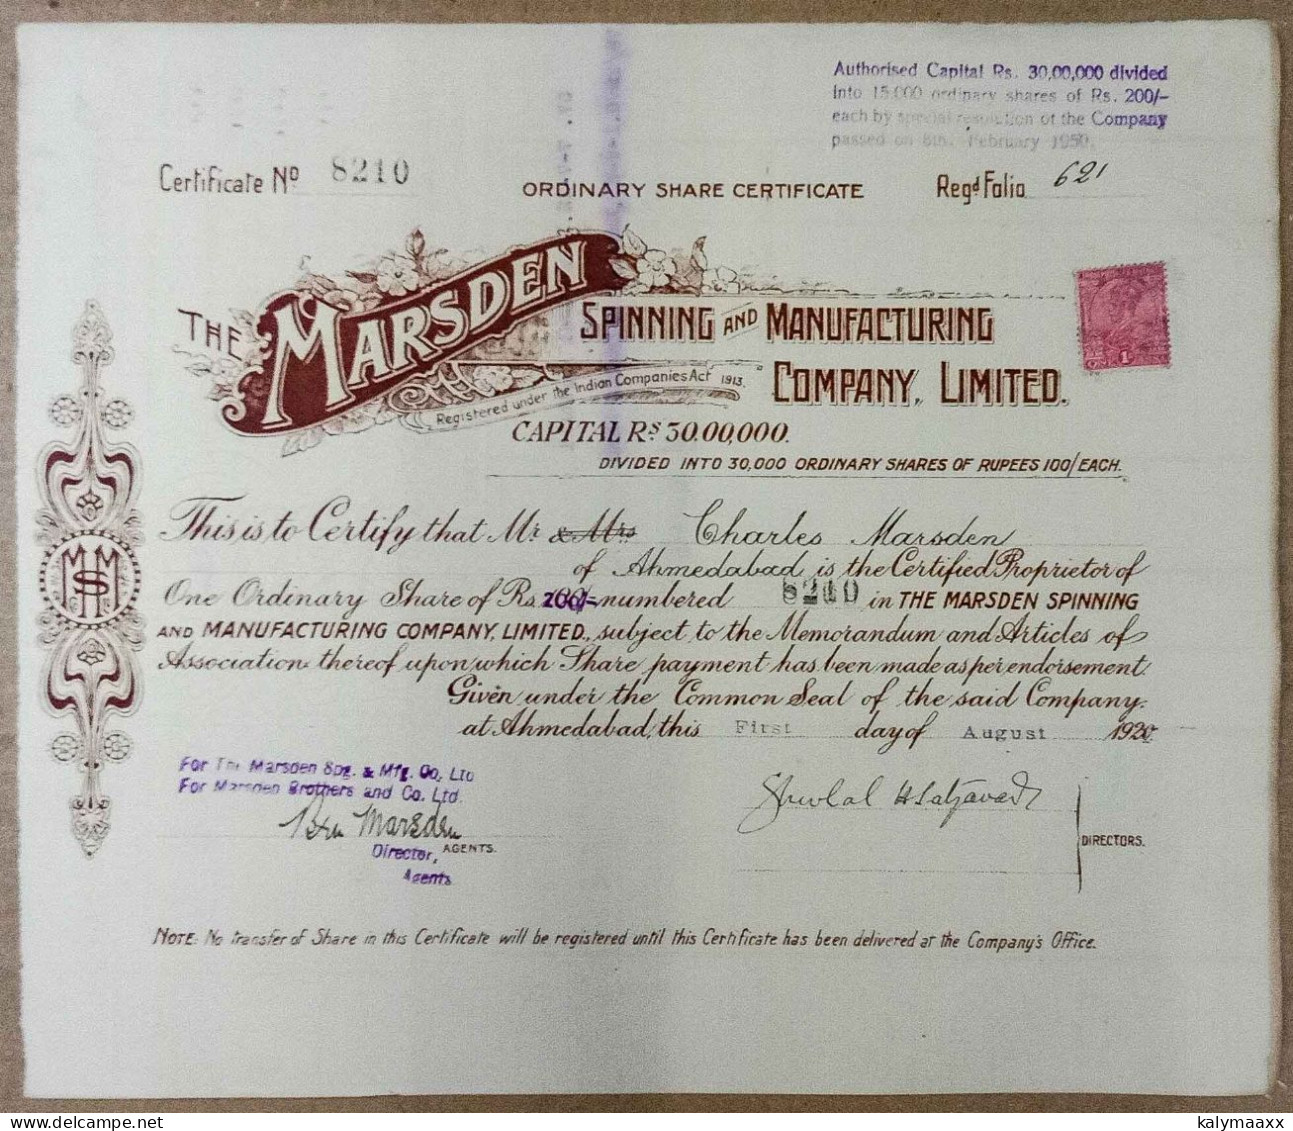 Authorised Capital Rs. 30,00,000 divided
into 15,000 ordinary shares of Rs. 200/-
each by special resolution of the Company
passed on 8th. February 1950.
Certificate No 8210
ORDINARY SHARE CERTIFICATE
Regd Folio 621
THE MARSDEN
SPINNING AND MANUFACTURING
COMPANY, LIMITED.
Registered under the Indian Companies Act 1913.
CAPITAL RS 30.00,000.
DIVIDED INTO 30,000 ORDINARY SHARES OF RUPEES 100/EACH.
This is to Certify that Mr & Mrs Charles Marsden
of Ahmedabad is the Certified Proprietor of
One Ordinary Share of Rs. 200/- numbered 8210 in THE MARSDEN SPINNING
AND MANUFACTURING COMPANY, LIMITED., subject to the Memorandum and Articles of
Association thereof upon which Share payment has been made as per endorsement.
Given under the Common Seal of the said Company.
at Ahmedabad, this First day of August 1920
For The Marsden Spg. & Mfg. Co, Ltd
For Marsden Brothers and Co. Ltd.
Marsden
Director, AGENTS.
Agents
DIRECTORS.
NOTE: No transfer of Share in this Certificate will be registered until this Certificate has been delivered at the Company's Office.
kalymaaxx